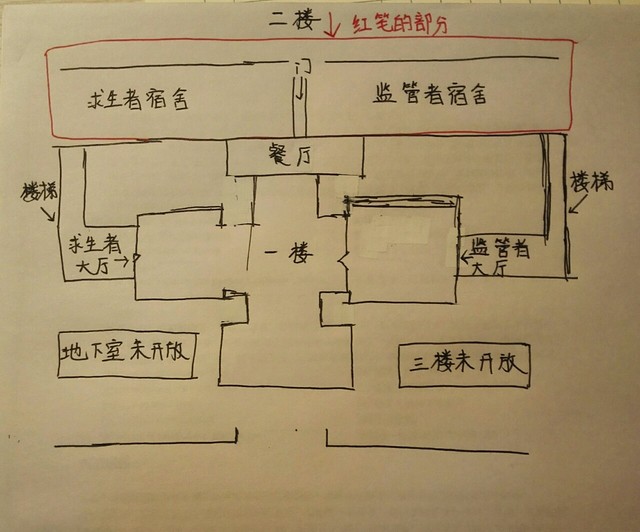 二楼
红笔的部分
门
求生者宿舍
监管者宿舍
餐厅
楼梯
楼梯
求生者
大厅
一楼
监管者
大厅
地下室未开放
三楼未开放